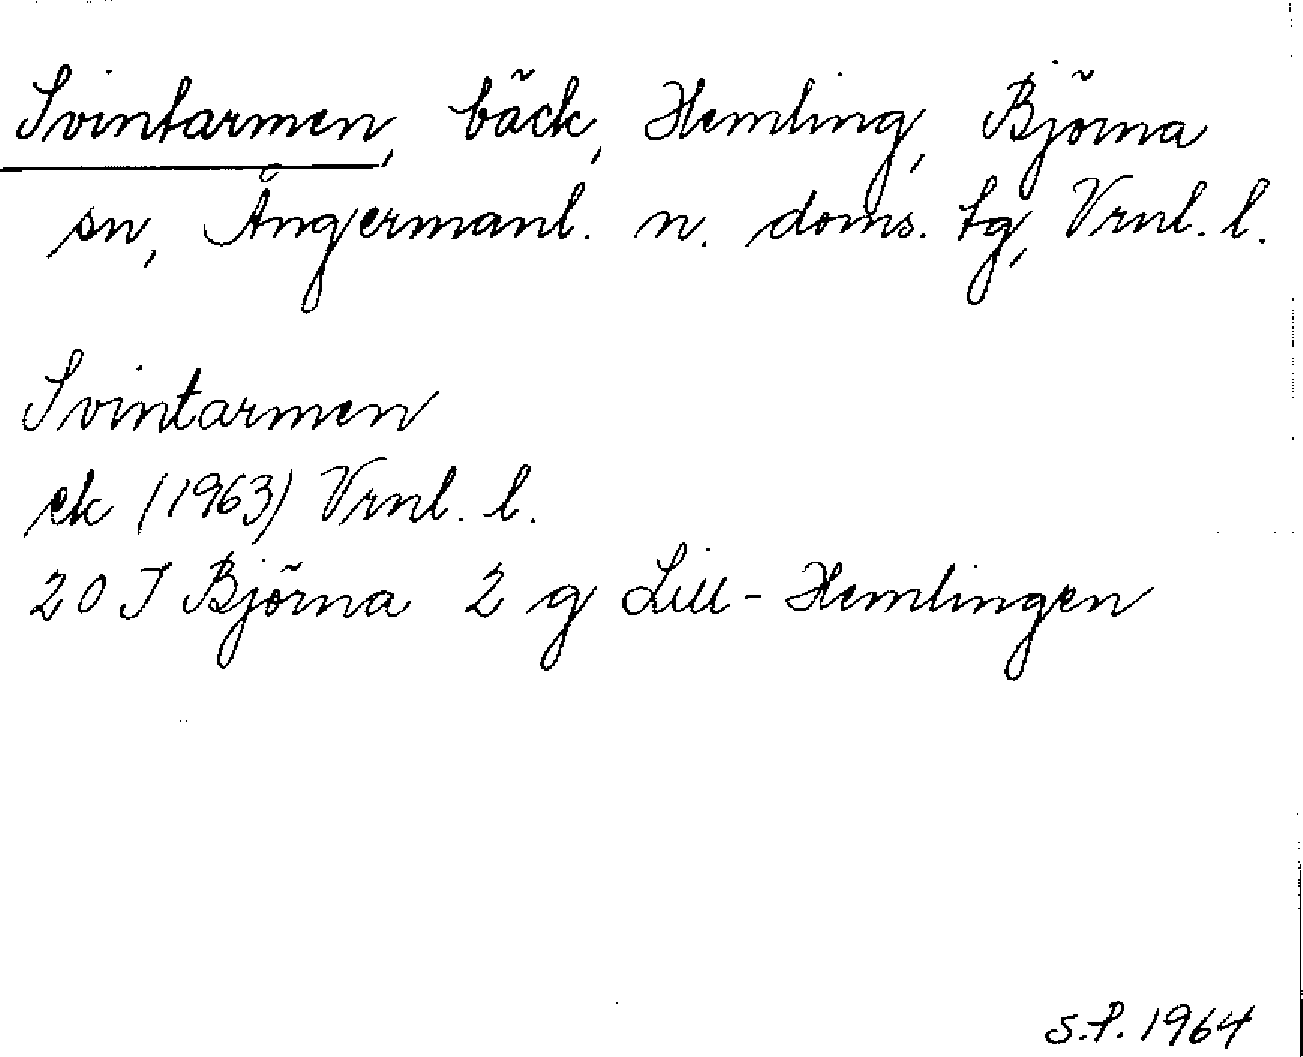 Svintarmen, bäck, Hemling, Björna
sn, Ångermanl. n. doms. tg, Vrnl. l.
Svintarmen
ek (1963) Vrnl. l.
20 I Björna 2 g Lill-Hemlingen
S.P. 1964